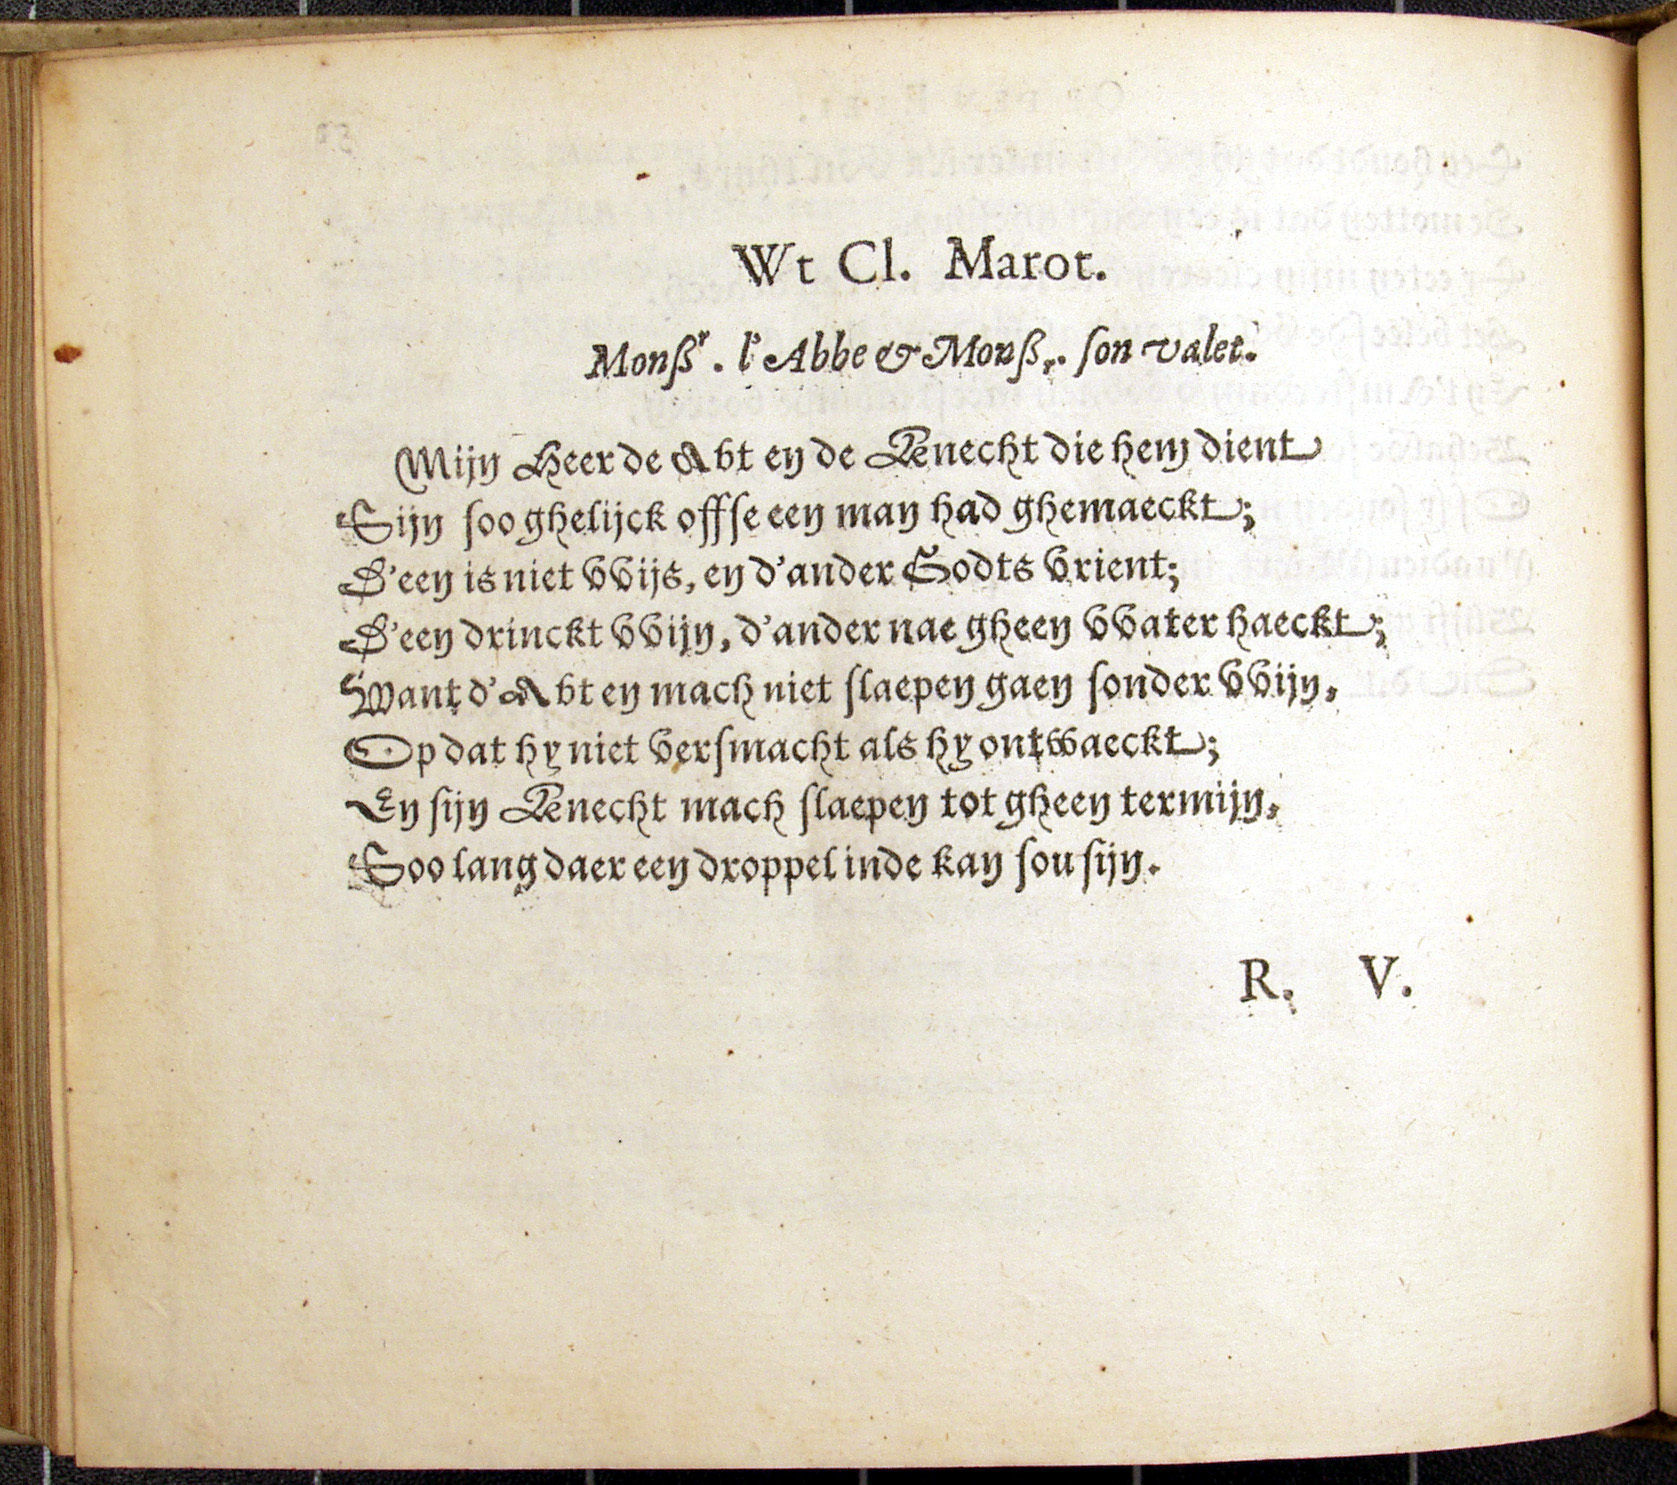 Wt Cl. Marot.
Monßr. l'Abbe & Monßr. son valet.
Mijn Heer de Abt en de Knecht die hem dient
Sijn soo ghelijck offse een man had ghemaeckt;
D'een is niet vvijs, en d'ander Godts vrient;
D'een drinckt vvijn, d'ander nae gheen vvater haeckt;
Want d'Abt en mach niet slaepen gaen sonder vvijn,
Op dat hy niet versmacht als hy ontwaeckt;
En sijn Knecht mach slaepen tot gheen termijn,
Soo lang daer een droppel inde kan sou sijn.
R. V.